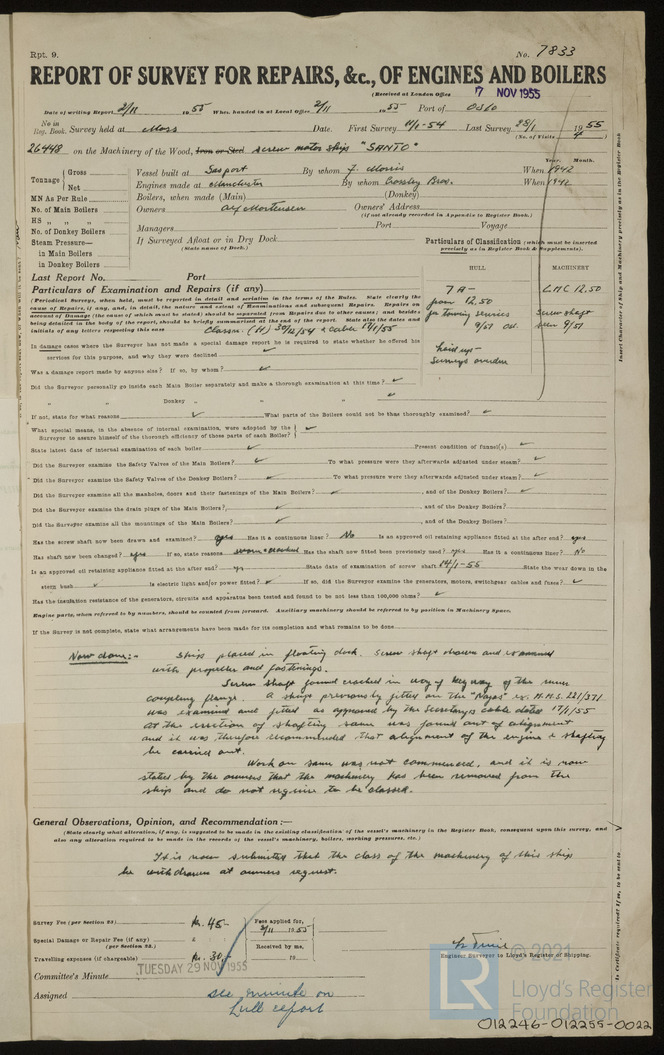 Rpt. 9.
No. 7833
REPORT OF SURVEY FOR REPAIRS, &c., OF ENGINES AND BOILERS
(Received at London Office 7 NOV 1955
Date of writing Report 2/11 1955 When handed in at Local Office 2/11 1955 Port of Oslo
No. in Reg. Book. Survey held at Moss Date. First Survey 11/1-54 Last Survey 28/1 1955
(No. of Visits 4)
26448 on the Machinery of the Wood, Iron or Steel screw motor ship "SANTO"
Year. Month.
Tonnage Gross Vessel built at Gosport By whom J. Morris When 1942
Net Engines made at Manchester By whom Crossley Bros. When 1942
MN As Per Rule Boilers, when made (Main) (Donkey)
No. of Main Boilers Owners Alf Mortensen Owners' Address
(if not already recorded in Appendix to Register Book.)
HS " " Managers Port Voyage
No. of Donkey Boilers If Surveyed Afloat or in Dry Dock
(State name of Dock.)
Steam Pressure—
in Main Boilers
in Donkey Boilers
Particulars of Classification (which must be inserted
precisely as in Register Book & Supplements).
Last Report No. Port
HULL MACHINERY
Particulars of Examination and Repairs (if any)
(Periodical Surveys, when held, must be reported in detail and seriatim in the terms of the Rules. State clearly the
cause of Repairs, if any, and, in detail, the nature and extent of Examinations and subsequent Repairs. Repairs on
account of Damage (the cause of which must be stated) should be separated from Repairs due to other causes; and besides
being detailed in the body of the report, should be briefly summarised at the end of the report. State also the dates and
initials of any letters respecting this case Classn. (H) 30/12/54 & Cable 17/1/55
7A-
from 12.50
for towing services
9/51 Osl.
laid up-
Surveys overdue
LMC 12,50
Screw shaft
seen 9/51
In damage cases where the Surveyor has not made a special damage report he is required to state whether he offered his
services for this purpose, and why they were declined
Was a damage report made by anyone else? If so, by whom?
Did the Surveyor personally go inside each Main Boiler separately and make a thorough examination at this time?
" " Donkey " " "
If not, state for what reasons What parts of the Boilers could not be thus thoroughly examined?
What special means, in the absence of internal examination, were adopted by the
Surveyor to assure himself of the thorough efficiency of those parts of each Boiler?
State latest date of internal examination of each boiler Present condition of funnel(s)
Did the Surveyor examine the Safety Valves of the Main Boilers? To what pressure were they afterwards adjusted under steam?
Did the Surveyor examine the Safety Valves of the Donkey Boilers? To what pressure were they afterwards adjusted under steam?
Did the Surveyor examine all the manholes, doors and their fastenings of the Main Boilers? , and of the Donkey Boilers?
Did the Surveyor examine the drain plugs of the Main Boilers? , and of the Donkey Boilers?
Did the Surveyor examine all the mountings of the Main Boilers? , and of the Donkey Boilers?
Has the screw shaft now been drawn and examined? yes Has it a continuous liner? No Is an approved oil retaining appliance fitted at the after end? yes
Has shaft now been changed? yes If so, state reasons worn & cracked Has the shaft now fitted been previously used? yes Has it a continuous liner? No
Is an approved oil retaining appliance fitted at the after end? yes State date of examination of screw shaft 24/1-55 State the wear down in the
stern bush Is electric light and/or power fitted? If so, did the Surveyor examine the generators, motors, switchgear cables and fuses?
Has the insulation resistance of the generators, circuits and apparatus been tested and found to be not less than 100,000 ohms?
Engine parts, when referred to by numbers, should be counted from forward. Auxiliary machinery should be referred to by position in Machinery Space.
If the Survey is not complete, state what arrangements have been made for its completion and what remains to be done
Now done:- Ships placed in floating dock. Screw shaft drawn and examined
with propeller and fastenings.
Screw shaft found cracked in way of keyway of the main
coupling flange. A shaft previously fitted on the "Najas" ex. M.M.S. 221/371
was examined and fitted as approved by the Secretarys cable dated 17/1/55
At the erection of shafting same was found out of alignment
and it was therefore recommended that alignment of the engine & shafting
be carried out.
Work on same was not commenced, and it is now
stated by the owners that the machinery has been removed from the
ship and do not require to be classed.
General Observations, Opinion, and Recommendation:—
(State clearly what alteration, if any, is suggested to be made in the existing classification of the vessel's machinery in the Register Book, consequent upon this survey, and
also any alteration required to be made in the records of the vessel's machinery, boilers, working pressures, etc.)
It is now submitted that the class of the machinery of this ship
be withdrawn at owners request.
Survey Fee (per Section 29) Kr. 45- Fees applied for, 2/11 1955
Special Damage or Repair Fee (if any) £
(per Section 29.)
Received by me,
Travelling expenses (if chargeable) Kr. 30- 19
Engineer Surveyor to Lloyd's Register of Shipping.
Committee's Minute TUESDAY 29 NOV 1955
Assigned see minute on
Hull report
Insert Character of Ship and Machinery precisely as in the Register Book
Is Certificate required? If so, to be sent to
© 2021
LR
Lloyd's Register
Foundation
012246-012255-0022